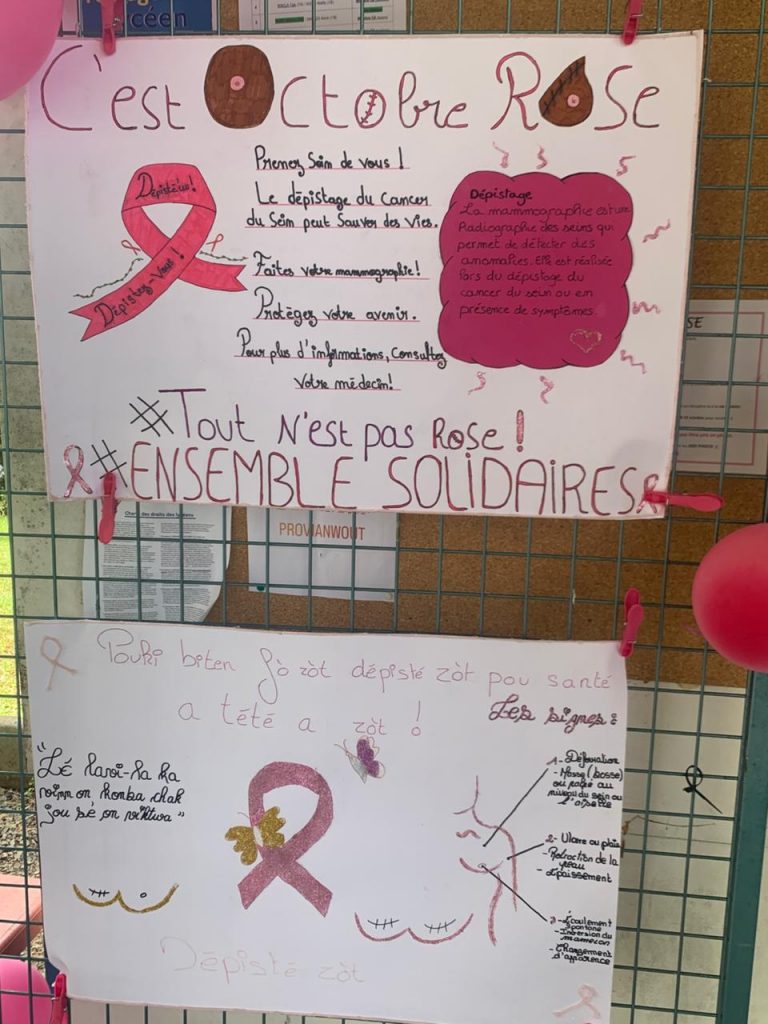 céen
C'est Octobre Rose
Dépisté'w!
Dépistez-Vous!
Prenez Soin de vous !
Le dépistage du Cancer
du Sein peut Sauver des Vies.
Faites votre mammographie!
Protégez votre avenir.
Pour plus d'informations, Consultez
Votre médecin!
Dépistage
La mammographie est une
Radiographie des seins qui
permet de détecter des
anomalies. Elle est réalisée
lors du dépistage du
cancer du sein ou en
présence de symptômes.
#Tout N'est pas Rose !
#ENSEMBLE SOLIDAIRES
SE
Charte des droits des lycéens
PROVIANWOUT
Pouki biten fò zòt dépisté zòt pou santé
a tété a zòt !
Les signes :
"Lè lavi-la ka
vinn on konba chak
jou sé on viktwa"
1- Déformation
- Masse (bosse)
au
niveau du sein ou
l'aisselle
2- Ulcère ou plaie
- Rétraction de la
peau
- Épaissement
3- Écoulement
spontané
- Inversion du
mamelon
- Changement
d'apparence
Dépisté zòt